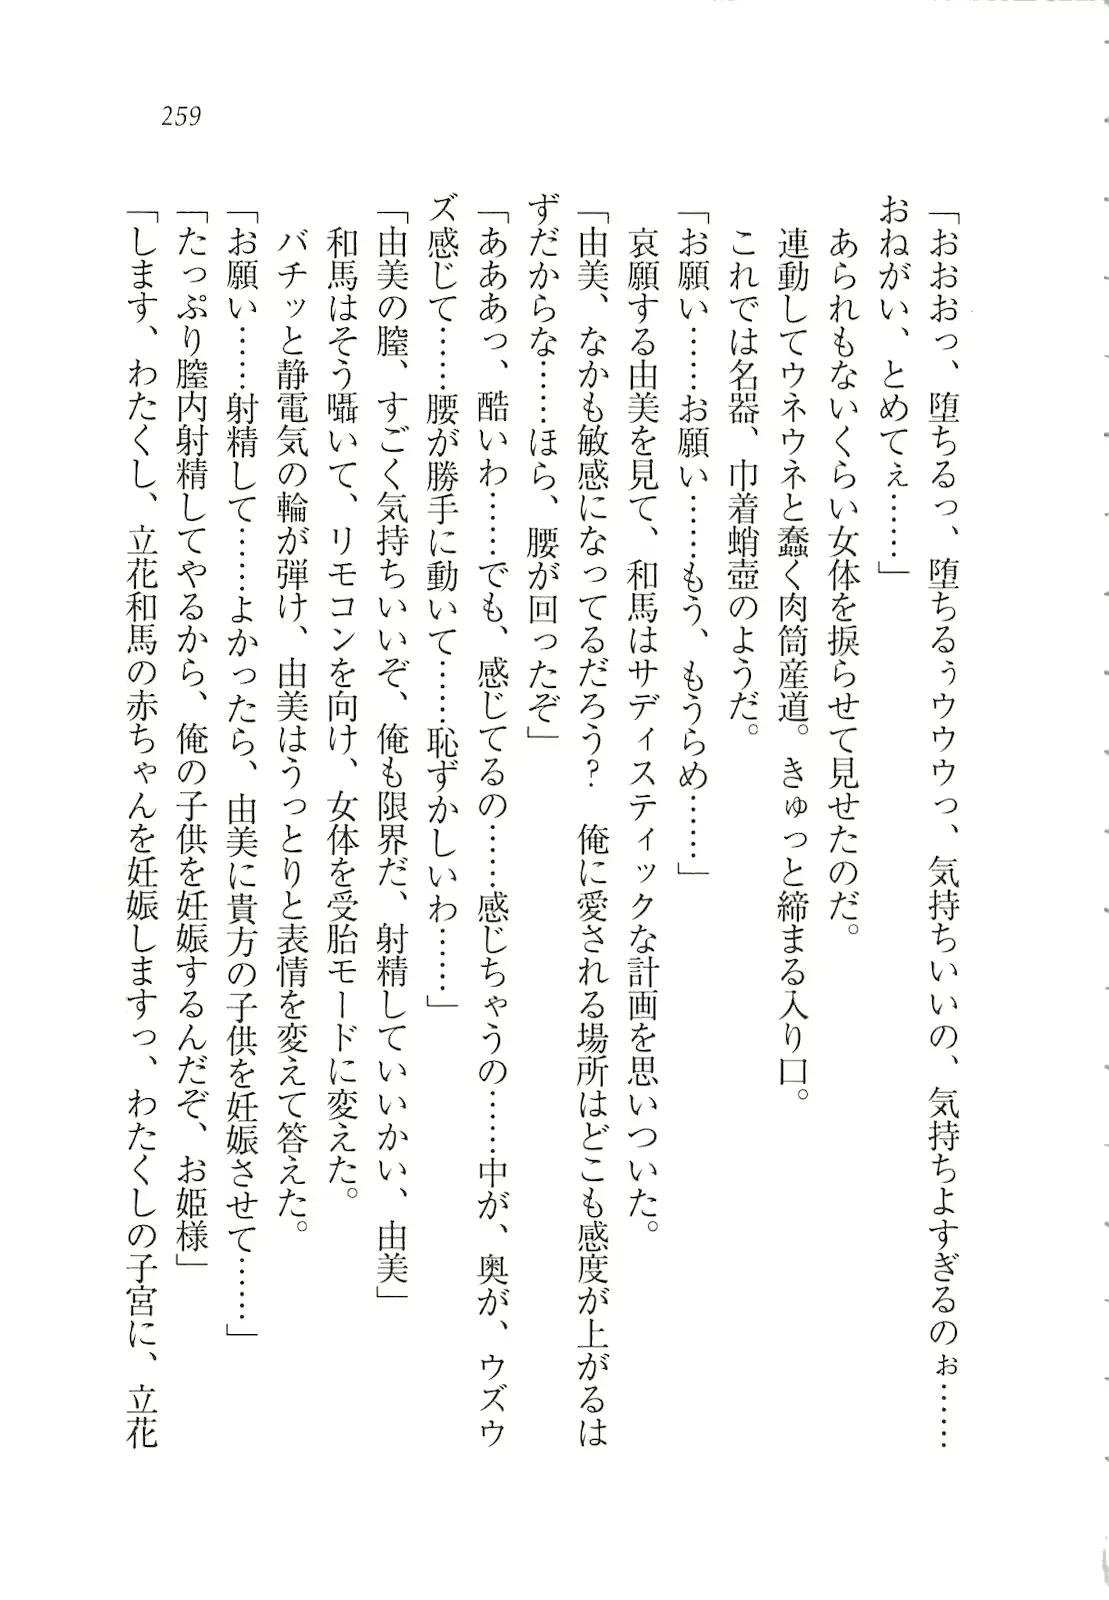 259
「おおおっ、堕ちるっ、堕ちるぅウウウっ、気持ちいいの、気持ちよすぎるのぉ……
おねがい、とめてぇ……」
あられもないくらい女体を捩らせて見せたのだ。
連動してウネウネと蠢く肉筒産道。きゅっと締まる入り口。
これでは名器、巾着蛸壺のようだ。
「お願い……お願い……もう、もうらめ……」
哀願する由美を見て、和馬はサディスティックな計画を思いついた。
「由美、なかも敏感になってるだろう？　俺に愛される場所はどこも感度が上がるは
ずだからな……ほら、腰が回ったぞ」
「あああっ、酷いわ……でも、感じてるの……感じちゃうの……中が、奥が、ウズウ
ズ感じて……腰が勝手に動いて……恥ずかしいわ……」
「由美の膣、すごく気持ちいいぞ、俺も限界だ、射精していいかい、由美」
和馬はそう囁いて、リモコンを向け、女体を受胎モードに変えた。
バチッと静電気の輪が弾け、由美はうっとりと表情を変えて答えた。
「お願い……射精して……よかったら、由美に貴方の子供を妊娠させて……」
「たっぷり膣内射精してやるから、俺の子供を妊娠するんだぞ、お姫様」
「します、わたくし、立花和馬の赤ちゃんを妊娠しますっ、わたくしの子宮に、立花